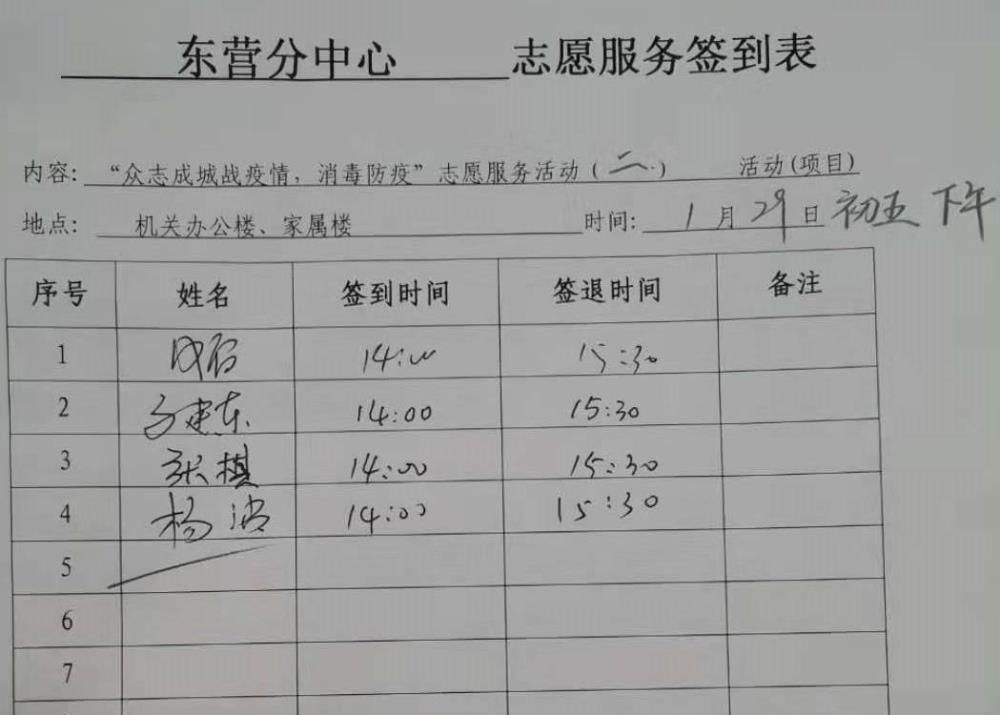 东营分中心 志愿服务签到表
内容: “众志成城战疫情,消毒防疫”志愿服务活动(二) 活动(项目)
地点: 机关办公楼、家属楼 时间: 1月29日 初五 下午
序号 姓名 签到时间 签退时间 备注
1 14:00 15:30
2 建东 14:00 15:30
3 张棋 14:00 15:30
4 杨波 14:00 15:30
5
6
7